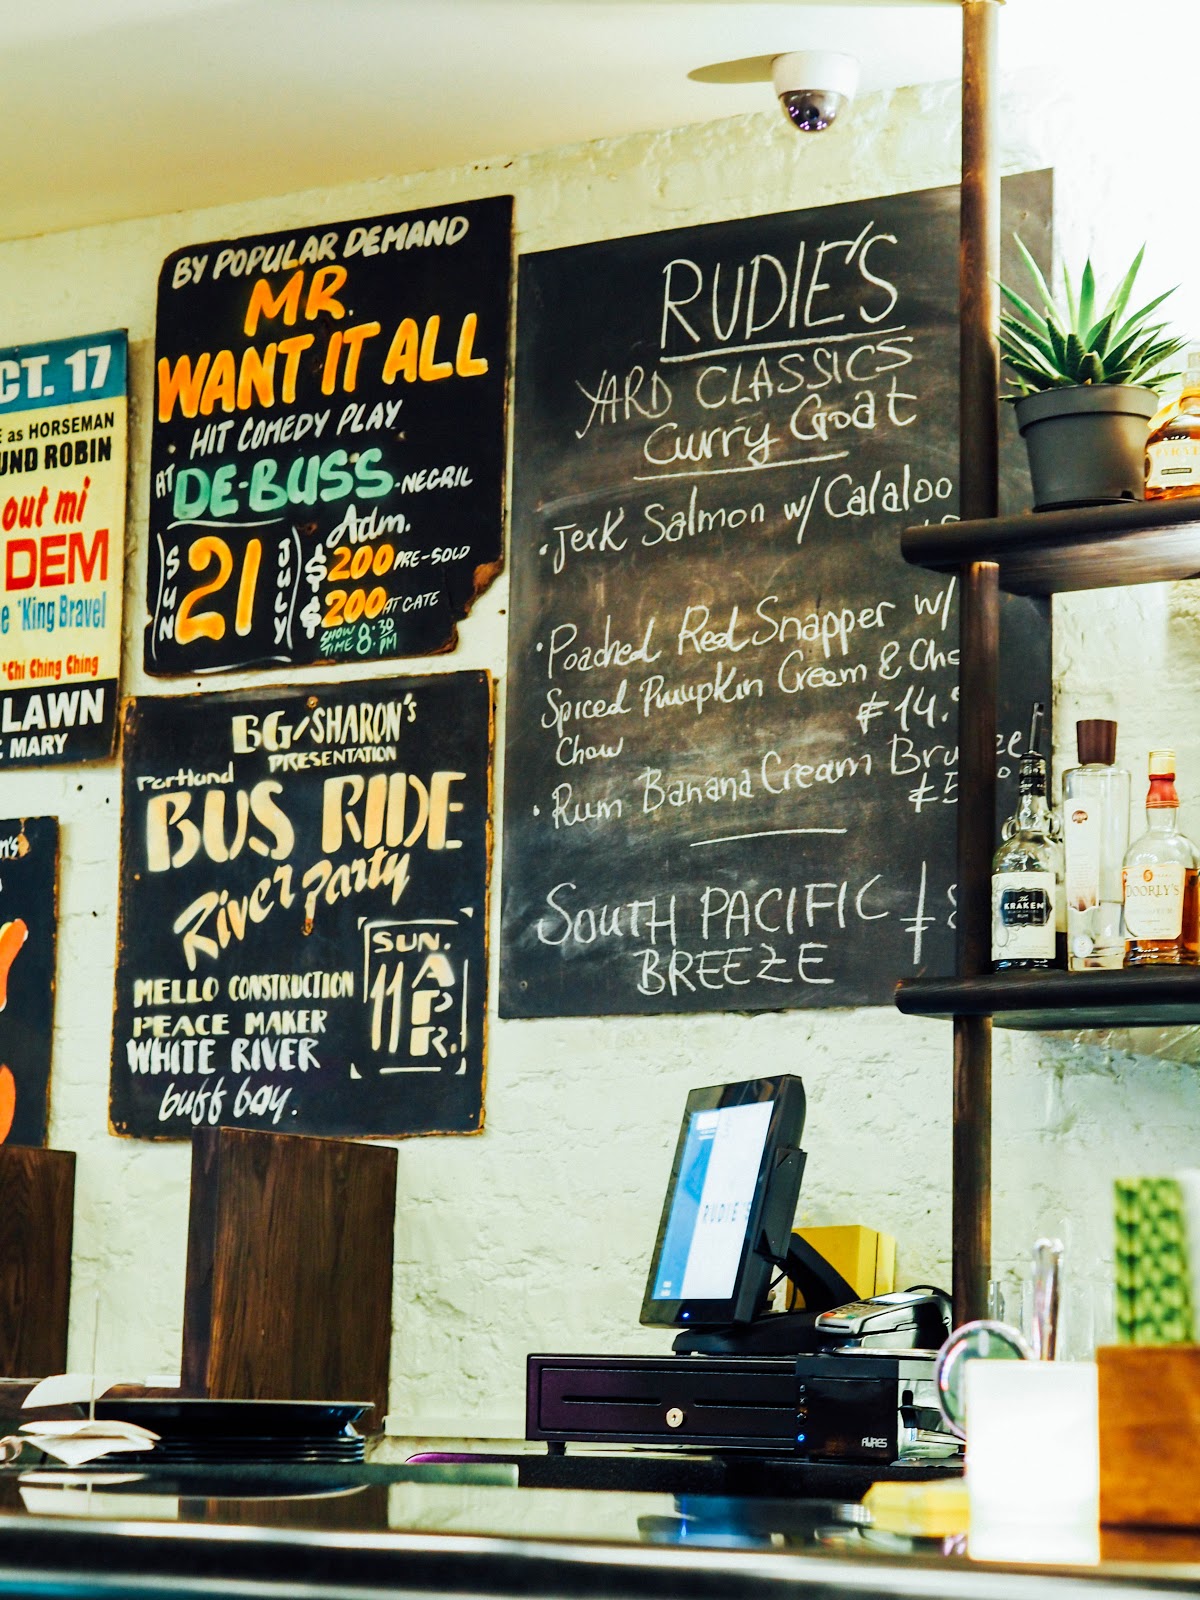 CT. 17
E as HORSEMAN
UND ROBIN
out mi
DEM
e 'King Bravel
'Chi Ching Ching
LAWN
MARY
BY POPULAR DEMAND
MR.
WANT IT ALL
HIT COMEDY PLAY
AT DE-BUSS-NEGRIL
SUN 21 JULY
Adm.
$200 PRE-SOLD
$200 AT GATE
SHOW TIME 8:30 PM
BG/SHARON'S
PRESENTATION
Portland
BUS RIDE
River Party
SUN.
11 APR.
MELLO CONSTRUCTION
PEACE MAKER
WHITE RIVER
buff bay.
RUDIE'S
YARD CLASSICS
Curry Goat
• Jerk Salmon w/ Calaloo
• Poached Red Snapper w/
Spiced Pumpkin Cream & Cho
Chow £14.
• Rum Banana Cream Bru
£5
SOUTH PACIFIC £
BREEZE
The
KRAKEN
BLACK SPICED
RUM
DOORLY'S
RUDIE'S
AURES